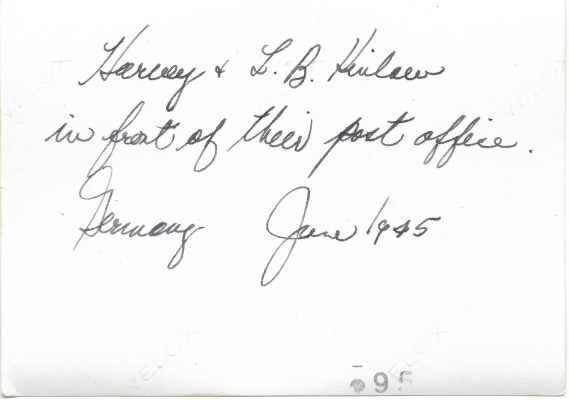 Harvey + L. B. Kinlaw
in front of their post office.
Germany June 1945
VELOX
VELOX
VELOX
VELOX